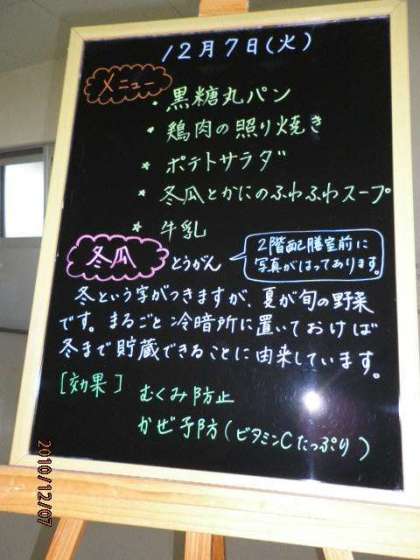 12月7日(火)
メニュー
・黒糖丸パン
★鶏肉の照り焼き
★ポテトサラダ
★冬瓜とかにのふわふわスープ
★牛乳
冬瓜 とうがん
2階配膳室前に
写真がはってあります。
冬という字がつきますが、夏が旬の野菜
です。まるごと冷暗所に置いておけば
冬まで貯蔵できることに由来しています。
[効果] むくみ防止
かぜ予防(ビタミンCたっぷり)
2010/12/07